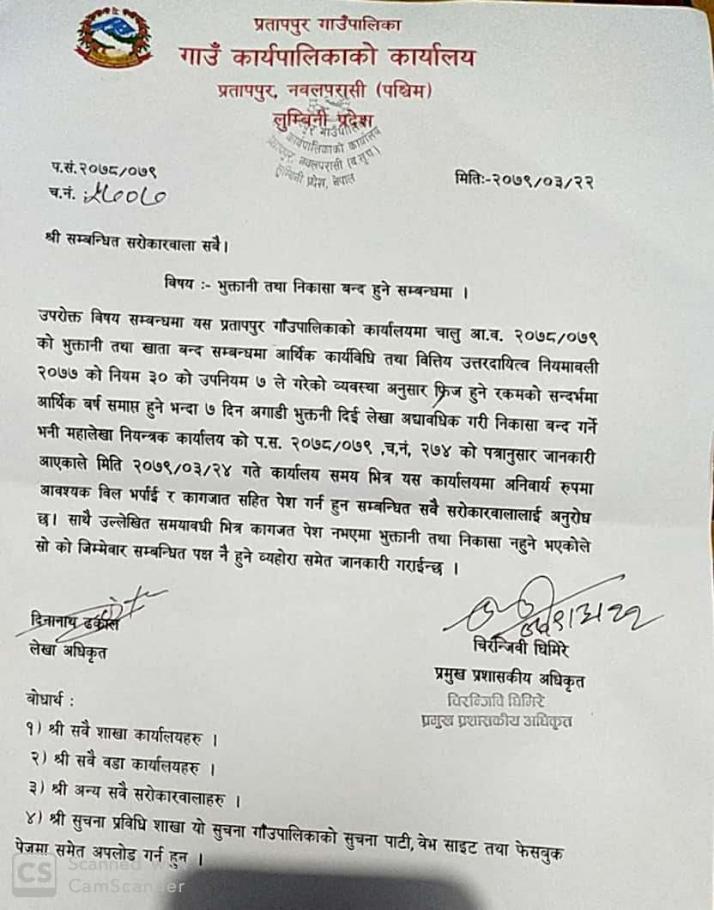 प्रतापपुर गाउँपालिका
गाउँ कार्यपालिकाको कार्यालय
प्रतापपुर, नवलपरासी (पश्चिम)
लुम्बिनी प्रदेश
कार्यपालिकाको कार्यालय
नवलपरासी (ब.सु.प.)
लुम्बिनी प्रदेश, नेपाल
प.सं.२०७८/०७९
मितिः-२०७९/०३/२२
च.नं. :
श्री सम्बन्धित सरोकारवाला सबै।
विषय :- भुक्तानी तथा निकासा बन्द हुने सम्बन्धमा ।
उपरोक्त विषय सम्बन्धमा यस प्रतापपुर गाँउपालिकाको कार्यालयमा चालु आ.व. २०७८/०७९
को भुक्तानी तथा खाता बन्द सम्बन्धमा आर्थिक कार्यविधि तथा वित्तिय उत्तरदायित्व नियमावली
२०७७ को नियम ३० को उपनियम ७ ले गरेको व्यवस्था अनुसार फ्रिज हुने रकमको सन्दर्भमा
आर्थिक बर्ष समाप्त हुने भन्दा ७ दिन अगाडी भुक्तनी दिई लेखा अद्यावधिक गरी निकासा बन्द गर्ने
भनी महालेखा नियन्त्रक कार्यालय को प.स. २०७८/०७९ ,च.नं, २७४ को पत्रानुसार जानकारी
आएकाले मिति २०७९/०३/२४ गते कार्यालय समय भित्र यस कार्यालयमा अनिवार्य रुपमा
आवश्यक विल भर्पाई र कागजात सहित पेश गर्न हुन सम्बन्धित सवै सरोकारवालालाई अनुरोध
छ। साथै उल्लेखित समयावधी भित्र कागजत पेश नभएमा भुक्तानी तथा निकासा नहुने भएकोले
सो को जिम्मेबार सम्बन्धित पक्ष नै हुने व्यहोरा समेत जानकारी गराईन्छ ।
दिनानाथ ढकाल
लेखा अधिकृत
चिरन्जिवी घिमिरे
प्रमुख प्रशासकीय अधिकृत
चिरन्जिवि घिमिरे
प्रमुख प्रशासकीय अधिकृत
बोधार्थ :
१) श्री सवै शाखा कार्यालयहरु ।
२) श्री सवै वडा कार्यालयहरु ।
३) श्री अन्य सवै सरोकारवालाहरु ।
४) श्री सुचना प्रविधि शाखा यो सुचना गाँउपालिकाको सुचना पाटी, वेभ साइट तथा फेसबुक
पेजमा समेत अपलोड गर्न हुन ।
CS Scanned with
CamScanner